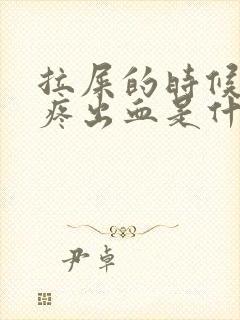 拉屎的时候
疼出血是什
尹卓